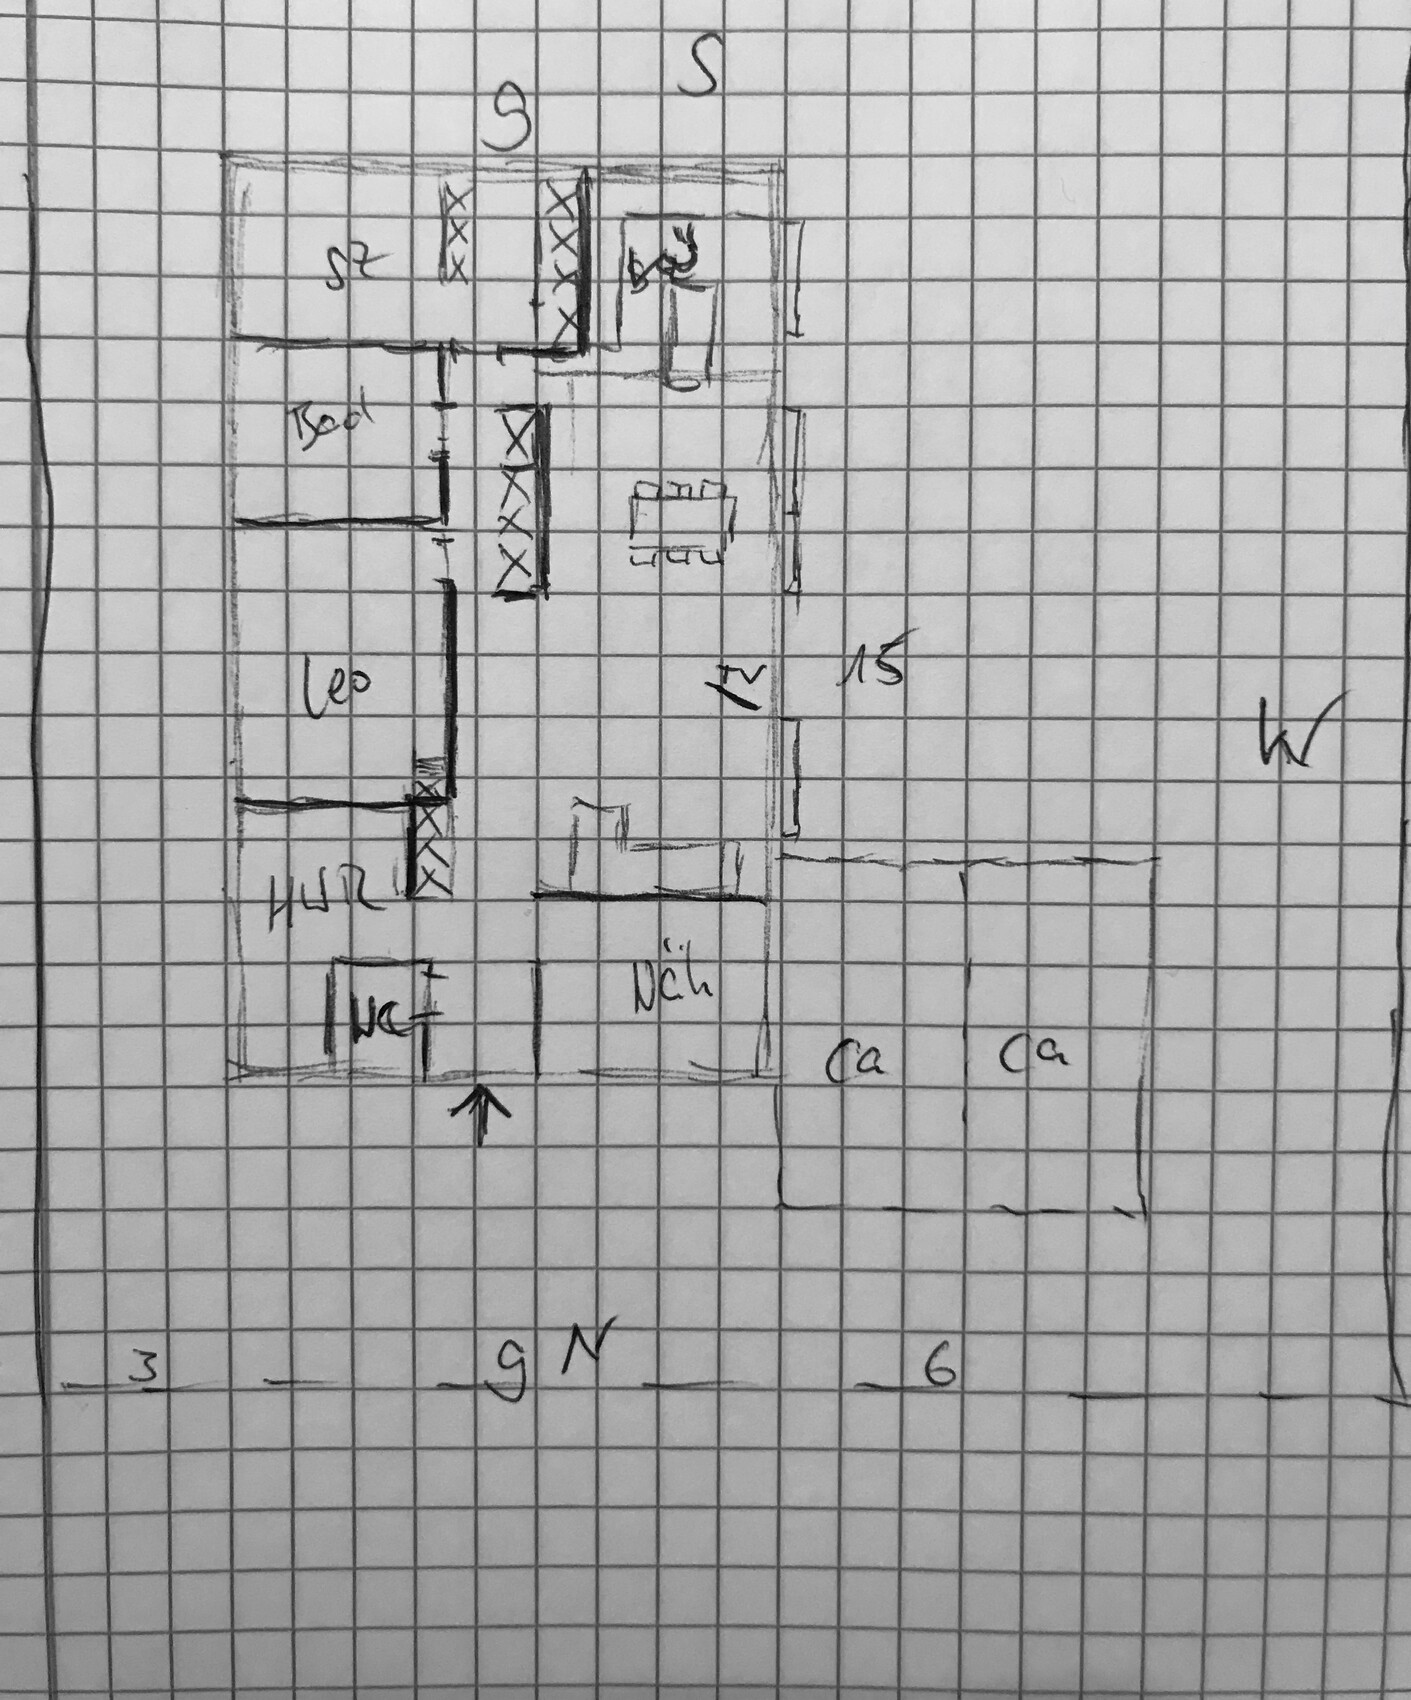 S
9
SZ
Bad
Leo
TV
15
W
HWR
Näh
WC
Ca
Ca
N
3
9
6